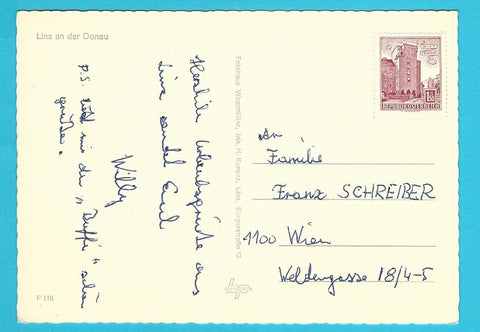 Linz an der Donau
Herzliche Urlaubsgrüße aus
Linz sendet Euch
Willy
P.S. laßt mir den "Buffi" schön
grüßen.
Fotohaus Wöstmüller, Inh. H. Linz, Bürgerstraße 12
P 116
REPUBLIK ÖSTERREICH
An
Familie
Franz SCHREIBER
1100 Wien
Weldengasse 18/4-5